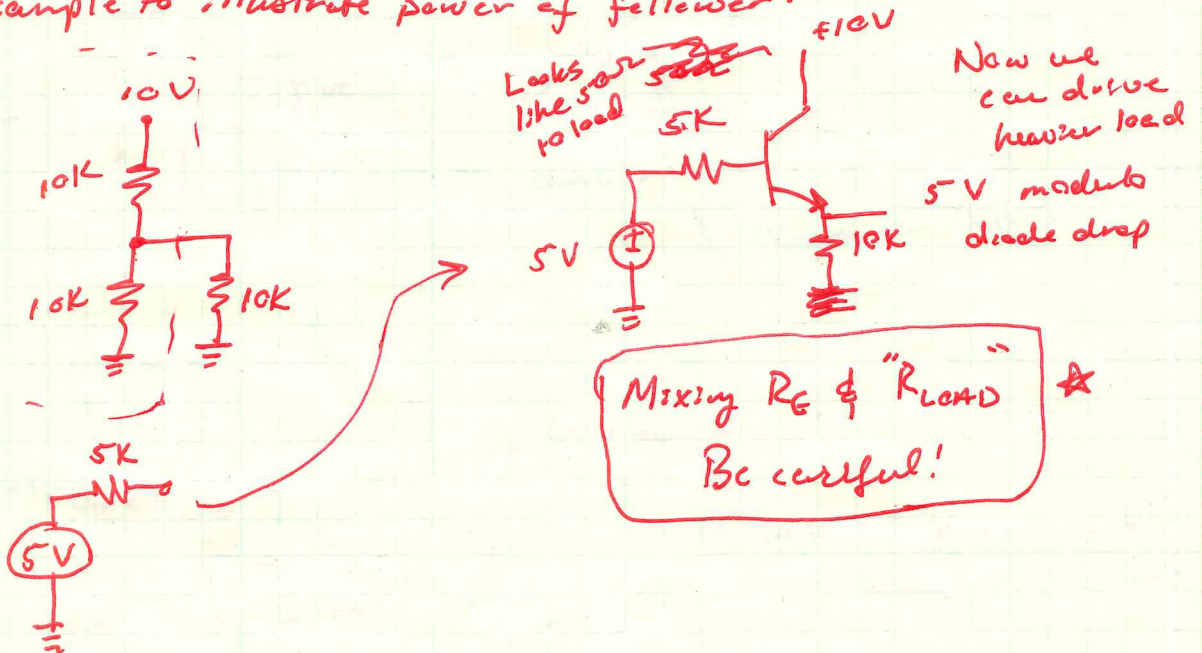 ample to illustrate power of follower
10V
10K
10K
10K
5K
5V
Looks
like 50Ω
to load
5K
5V
+10V
10K
Now we
can drive
heavier load
5V modulo
diode drop
Mixing RE & "RLOAD"
Be careful!